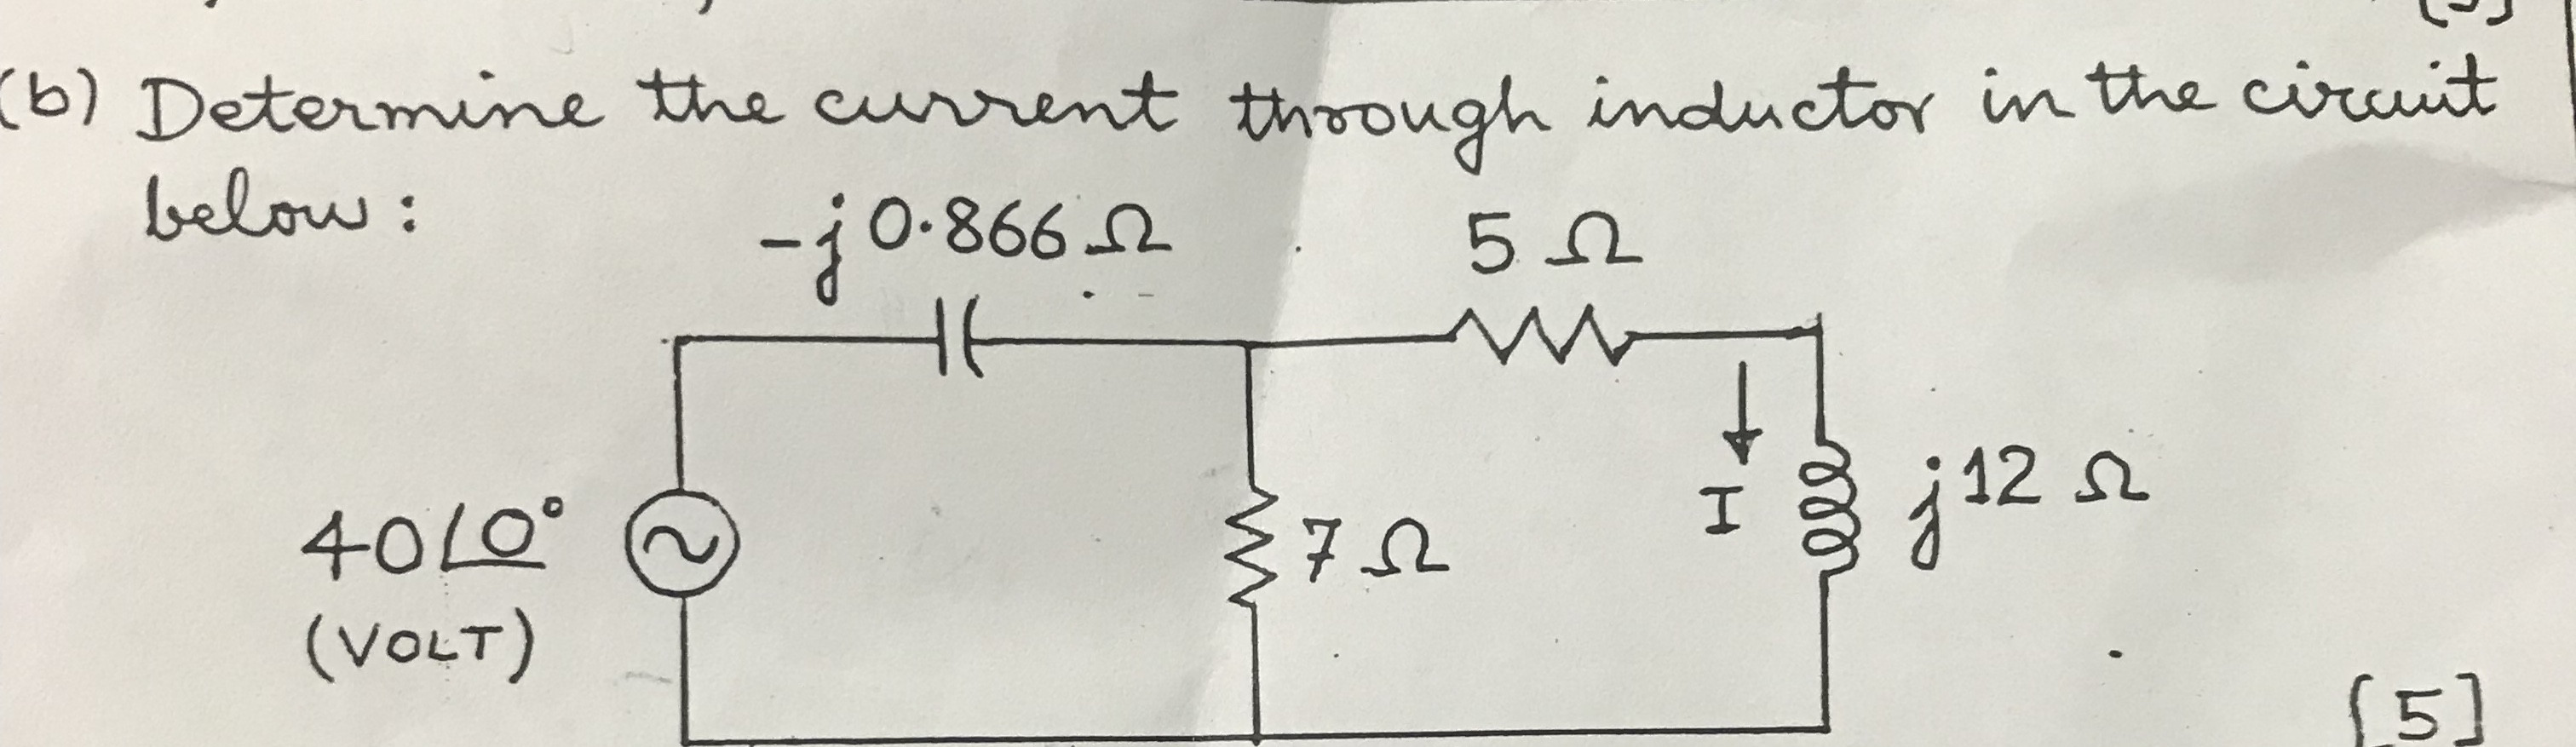 (b) Determine the current through inductor in the circuit
below:
-j0.866 Ω
5 Ω
I
j12 Ω
40∠0°
7 Ω
(VOLT)
[5]